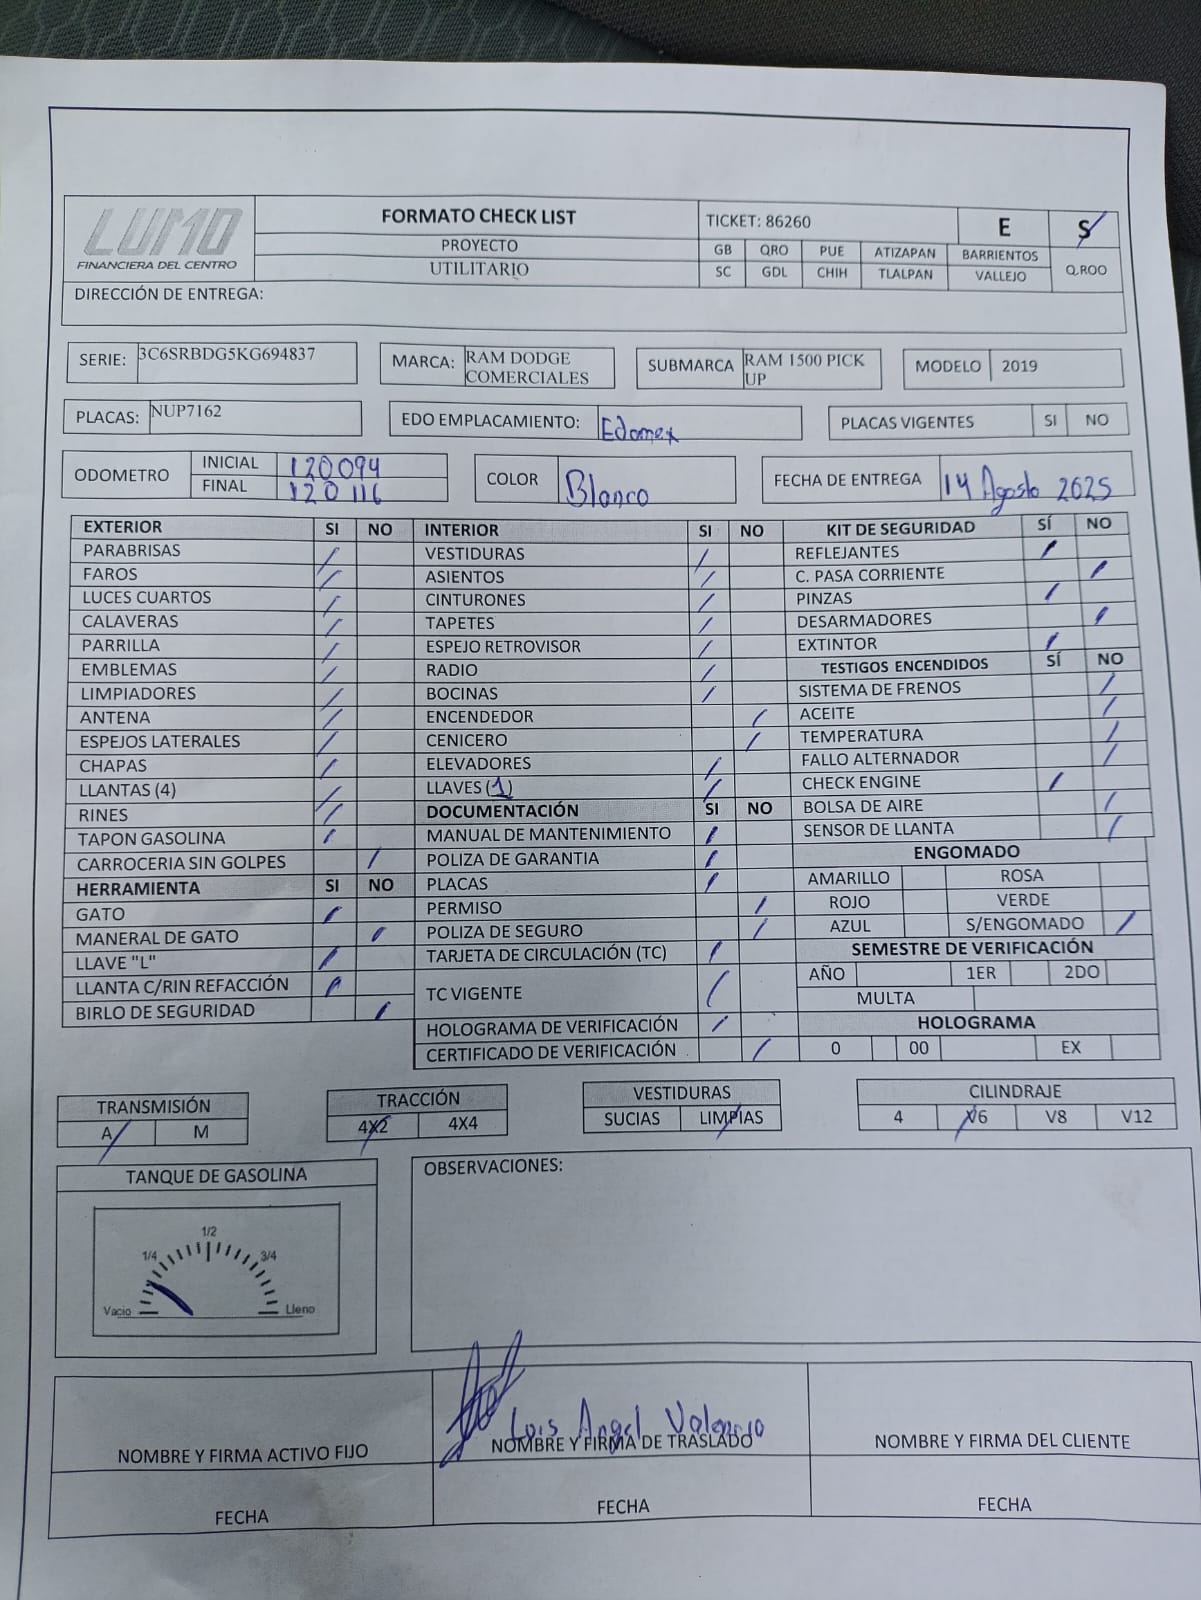 LUMO
FINANCIERA DEL CENTRO
FORMATO CHECK LIST
PROYECTO
UTILITARIO
TICKET: 86260 E S
GB QRO PUE ATIZAPAN BARRIENTOS
SC GDL CHIH TLALPAN VALLEJO Q.ROO
DIRECCIÓN DE ENTREGA:
SERIE: 3C6SRBDG5KG694837
MARCA: RAM DODGE COMERCIALES
SUBMARCA RAM 1500 PICK UP
MODELO 2019
PLACAS: NUP7162
EDO EMPLACAMIENTO: Edomex
PLACAS VIGENTES SI NO
ODOMETRO INICIAL 120094
FINAL 120116
COLOR Blanco
FECHA DE ENTREGA 14 Agosto 2025
EXTERIOR SI NO
PARABRISAS /
FAROS /
LUCES CUARTOS /
CALAVERAS /
PARRILLA /
EMBLEMAS /
LIMPIADORES /
ANTENA /
ESPEJOS LATERALES /
CHAPAS /
LLANTAS (4) /
RINES /
TAPON GASOLINA /
CARROCERIA SIN GOLPES /
HERRAMIENTA SI NO
GATO /
MANERAL DE GATO /
LLAVE "L" /
LLANTA C/RIN REFACCIÓN /
BIRLO DE SEGURIDAD /
INTERIOR SI NO
VESTIDURAS /
ASIENTOS /
CINTURONES /
TAPETES /
ESPEJO RETROVISOR /
RADIO /
BOCINAS /
ENCENDEDOR /
CENICERO /
ELEVADORES /
LLAVES (1) /
DOCUMENTACIÓN SI NO
MANUAL DE MANTENIMIENTO /
POLIZA DE GARANTIA /
PLACAS /
PERMISO /
POLIZA DE SEGURO /
TARJETA DE CIRCULACIÓN (TC) /
TC VIGENTE /
HOLOGRAMA DE VERIFICACIÓN /
CERTIFICADO DE VERIFICACIÓN /
KIT DE SEGURIDAD SÍ NO
REFLEJANTES /
C. PASA CORRIENTE /
PINZAS /
DESARMADORES /
EXTINTOR /
TESTIGOS ENCENDIDOS SÍ NO
SISTEMA DE FRENOS /
ACEITE /
TEMPERATURA /
FALLO ALTERNADOR /
CHECK ENGINE /
BOLSA DE AIRE /
SENSOR DE LLANTA /
ENGOMADO
AMARILLO ROSA
ROJO VERDE
AZUL S/ENGOMADO /
SEMESTRE DE VERIFICACIÓN
AÑO 1ER 2DO
MULTA
HOLOGRAMA
0 00 EX
TRANSMISIÓN
A M
TRACCIÓN
4X2 4X4
VESTIDURAS
SUCIAS LIMPIAS
CILINDRAJE
4 V6 V8 V12
TANQUE DE GASOLINA
Vacio 1/4 1/2 3/4 Lleno
OBSERVACIONES:
Luis Angel Valencio
NOMBRE Y FIRMA ACTIVO FIJO
NOMBRE Y FIRMA DE TRASLADO
NOMBRE Y FIRMA DEL CLIENTE
FECHA
FECHA
FECHA